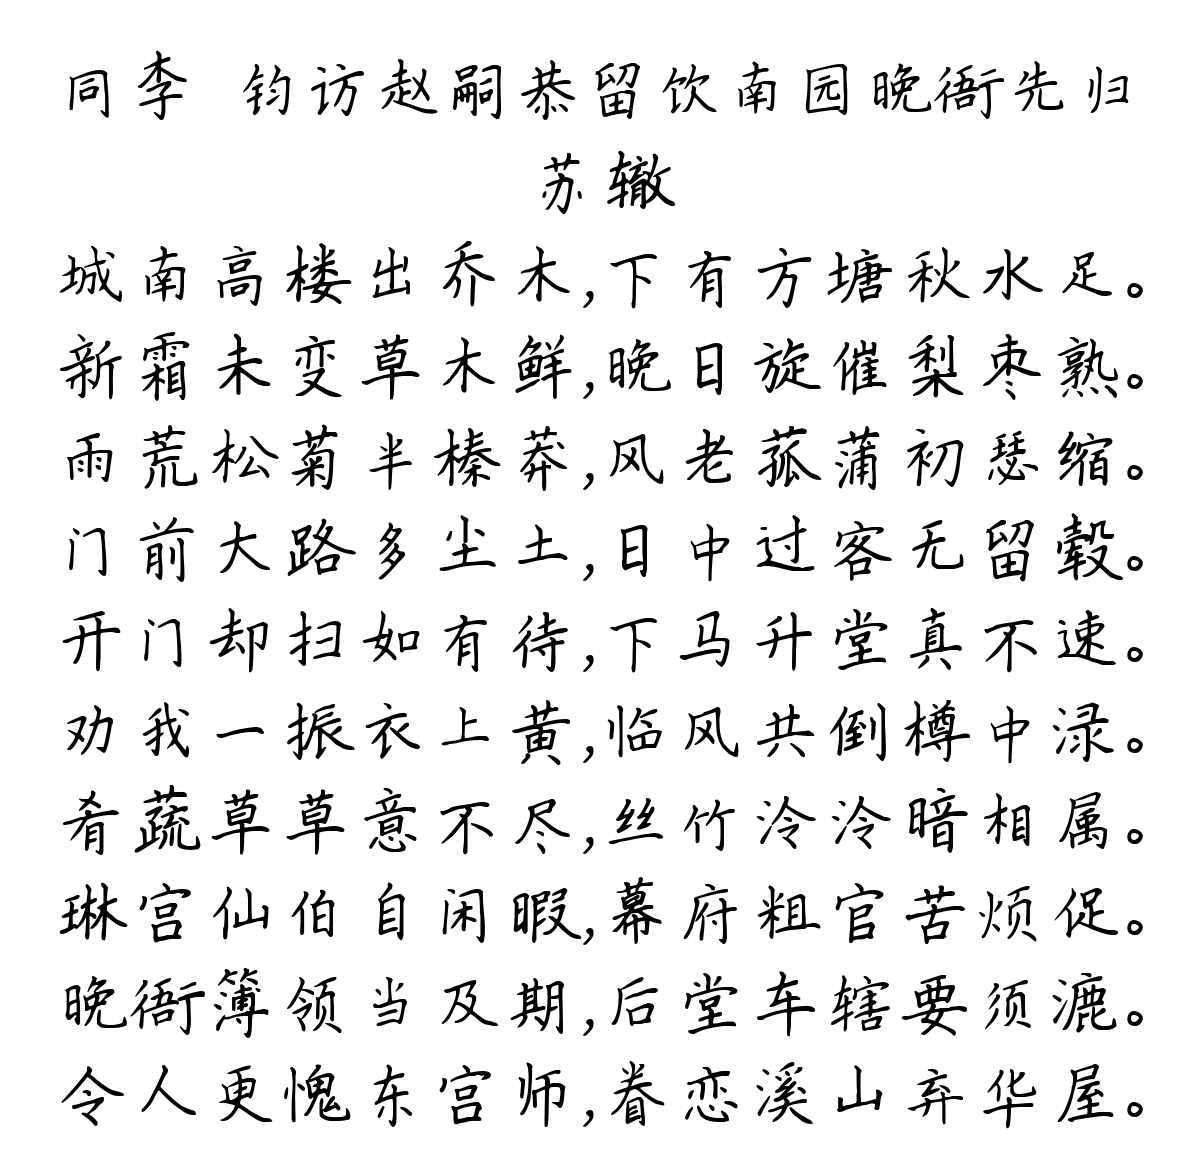 同李 钧访赵嗣恭留饮南园晚衙先归
苏辙
城南高楼出乔木,下有方塘秋水足。
新霜未变草木鲜,晚日旋催梨枣熟。
雨荒松菊半榛莽,风老菰蒲初瑟缩。
门前大路多尘土,日中过客无留毂。
开门却扫如有待,下马升堂真不速。
劝我一振衣上黄,临风共倒樽中渌。
肴蔬草草意不尽,丝竹泠泠暗相属。
琳宫仙伯自闲暇,幕府粗官苦烦促。
晚衙簿领当及期,后堂车辖要须漉。
令人更愧东宫师,眷恋溪山弃华屋。